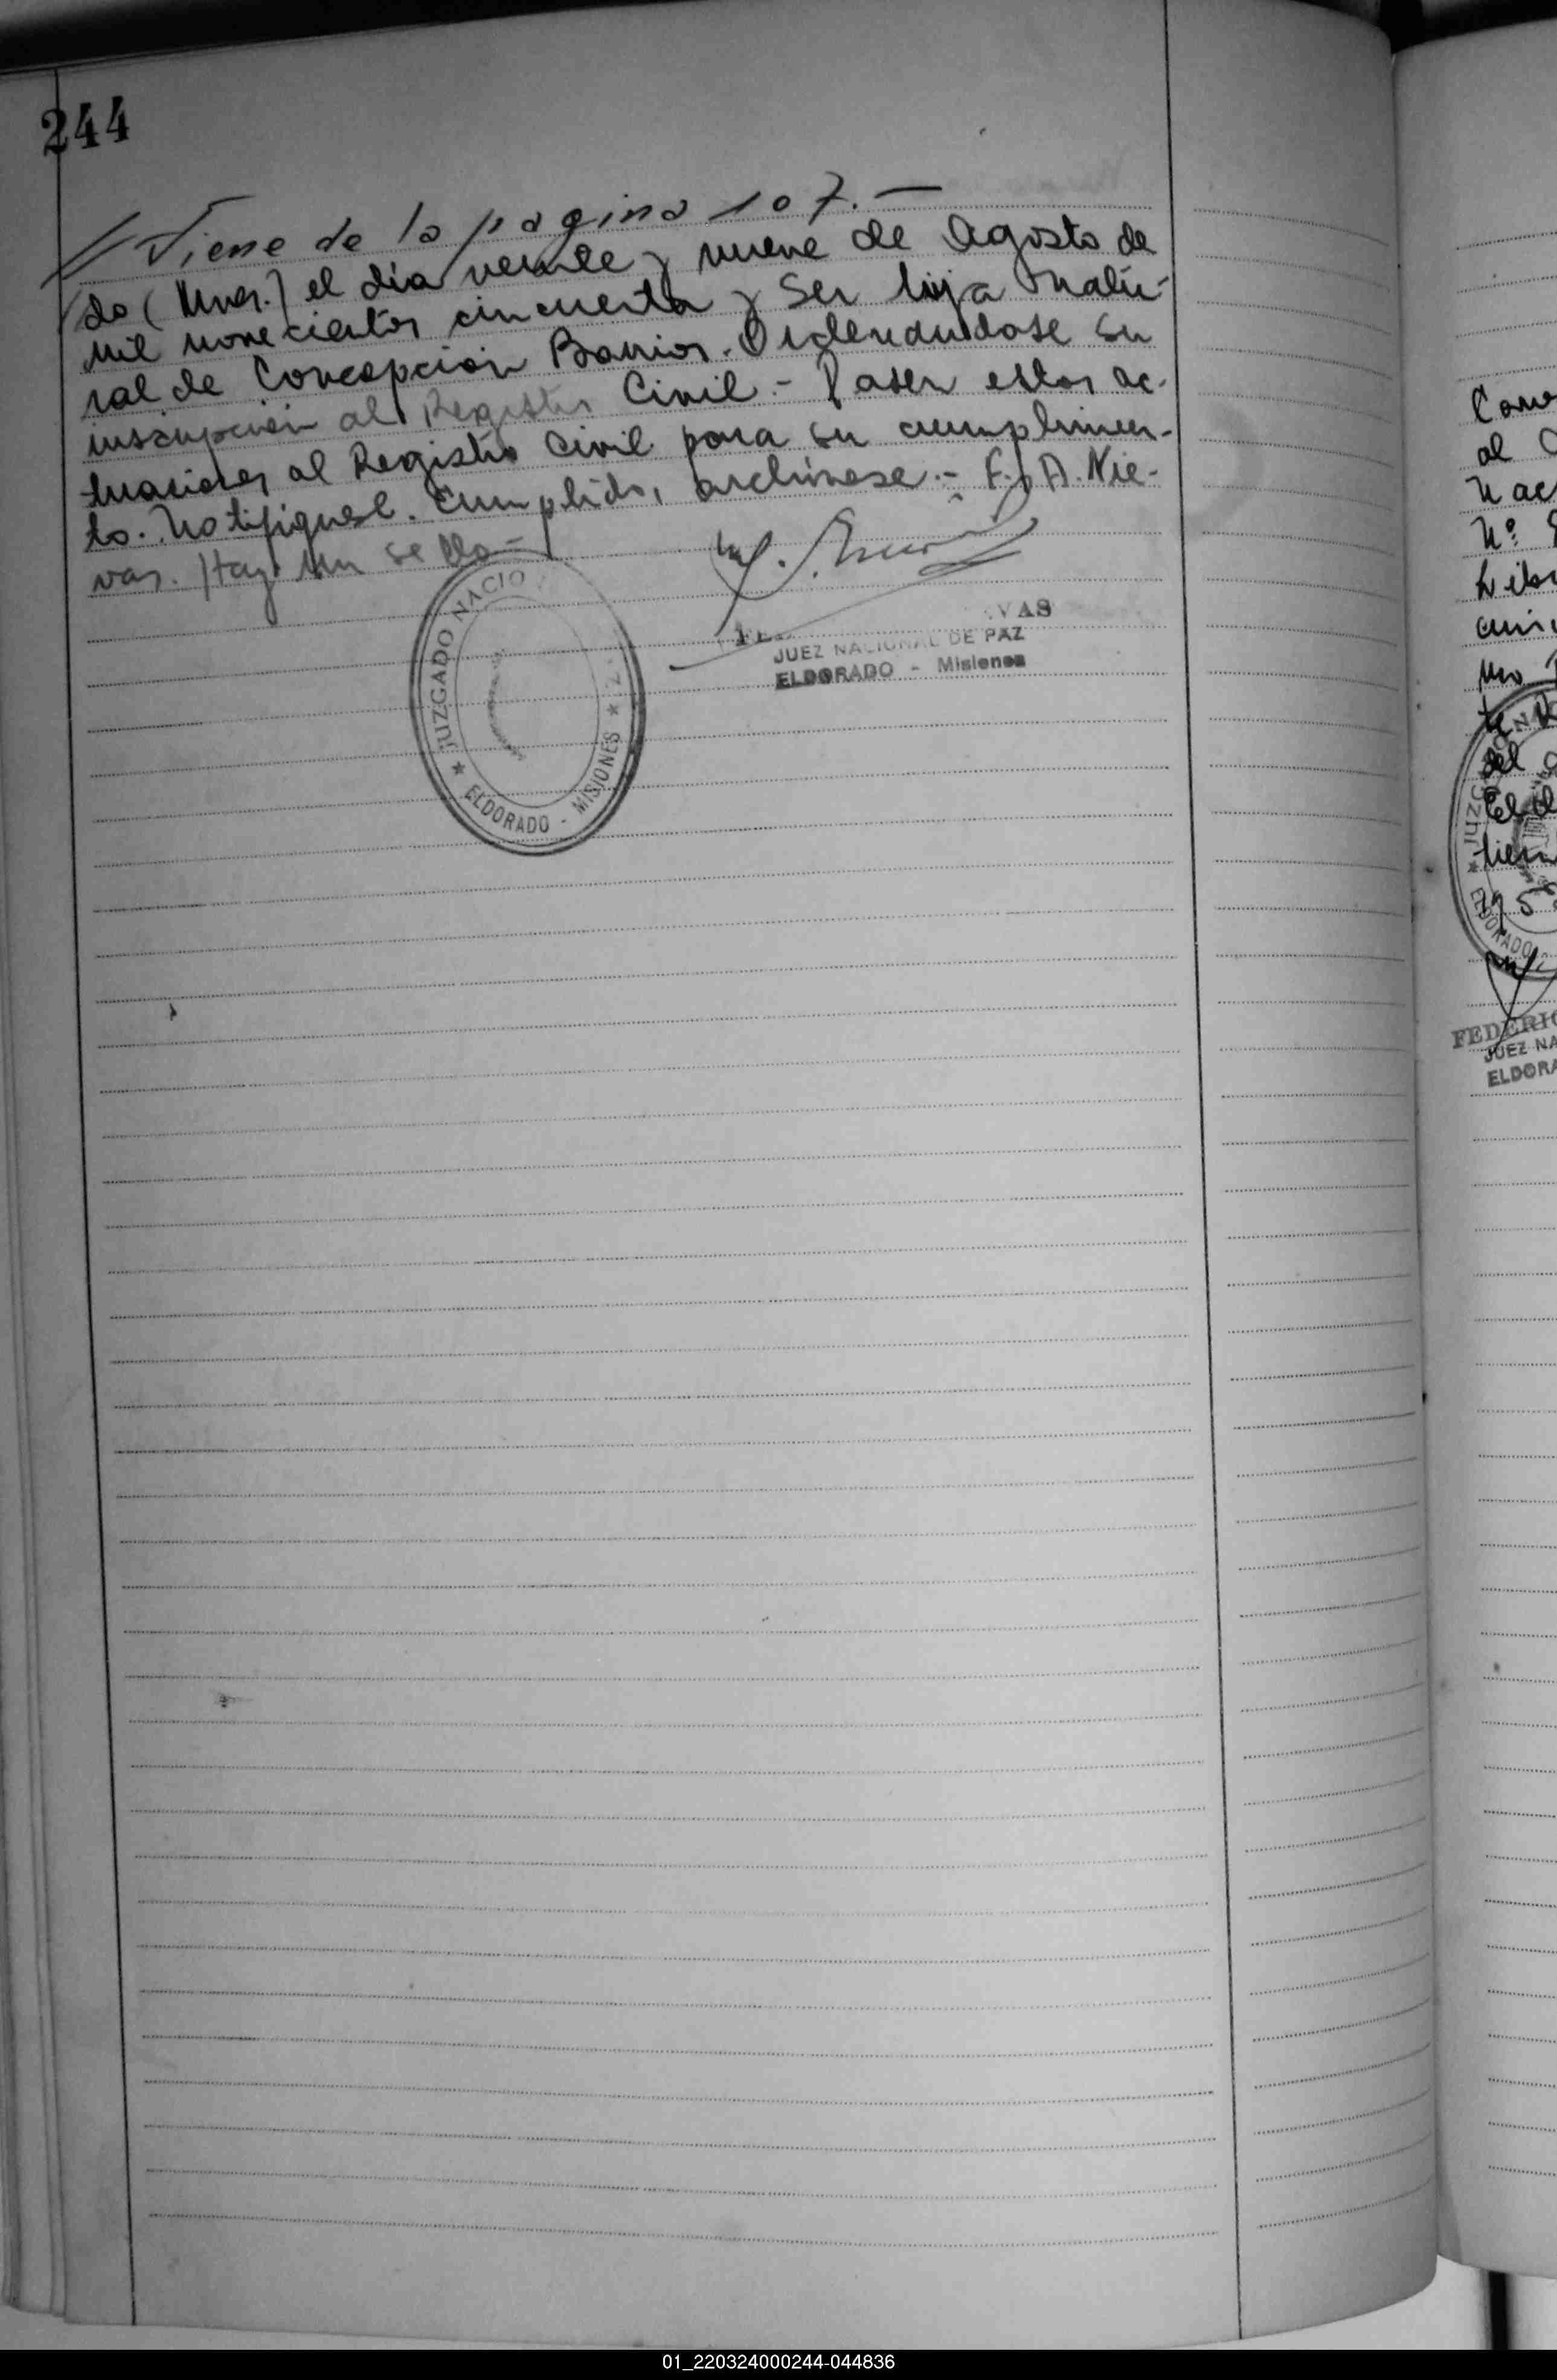 244
// Viene de la pagina 107.—
do (Mnes.) el dia veinte y nueve de Agosto de
mil novecientos cincuenta y Ser hija natu-
ral de Concepción Barrios. Ordenandose su
inscripcion al Registro Civil.- Pasen estas ac-
tuaciones al Registro Civil para su cumplimien-
to. Notifiquese. Cumplido, archivese.- F. A. Nie-
vas. Hay un sello-
JUZGADO NACIO
★ ELDORADO - MISIONES ★
VAS
JUEZ NACIONAL DE PAZ
ELDORADO - Misiones
al
Nº
del
195
ELDORADO
FEDERIC
JUEZ NA
ELDORA
01_220324000244-044836